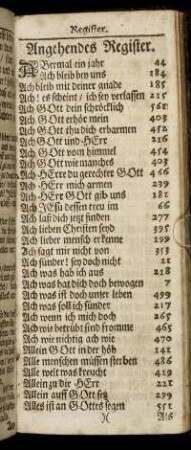 Register.
Angehendes Register.
ABermal ein jahr 44
Ach bleib bey uns 184
Ach bleib mit deiner gnade 185
Ach! es scheint/ ich sey verlassen 215
Ach GOtt dein schröcklich 561
Ach GOtt erhör mein 403
Ach GOtt thu dich erbarmen 452
Ach GOtt und HErr 216
Ach GOtt vom himmel 454
Ach GOtt wie manches 403
Ach HErre du gerechter GOtt 456
Ach HErr mich armen 239
Ach HErre GOtt gib uns 181
Ach JEsu dessen treu im 66
Ach laß dich jetzt finden 277
Ach lieben Christen seyd 395
Ach lieber mensch erkenne 199
Ach sagt mir nicht von 353
Ach sünder! sey doch nicht 21
Ach was hab ich aus 218
Ach was hat dich doch bewogen 7
Ach was ist doch unser leben 499
Ach was soll ich sünder 217
Ach wenn ich mich doch 265
Ach wie betrübt sind fromme 465
Ach wie nichtig ach wie 470
Allein GOtt in der höh 141
Alle menschen müssen sterben 486
Alle welt was kreucht 419
Allein zu dir HErr 221
Allein auff GOtt setz 299
Alles ist an GOttes segen 551
)( Als